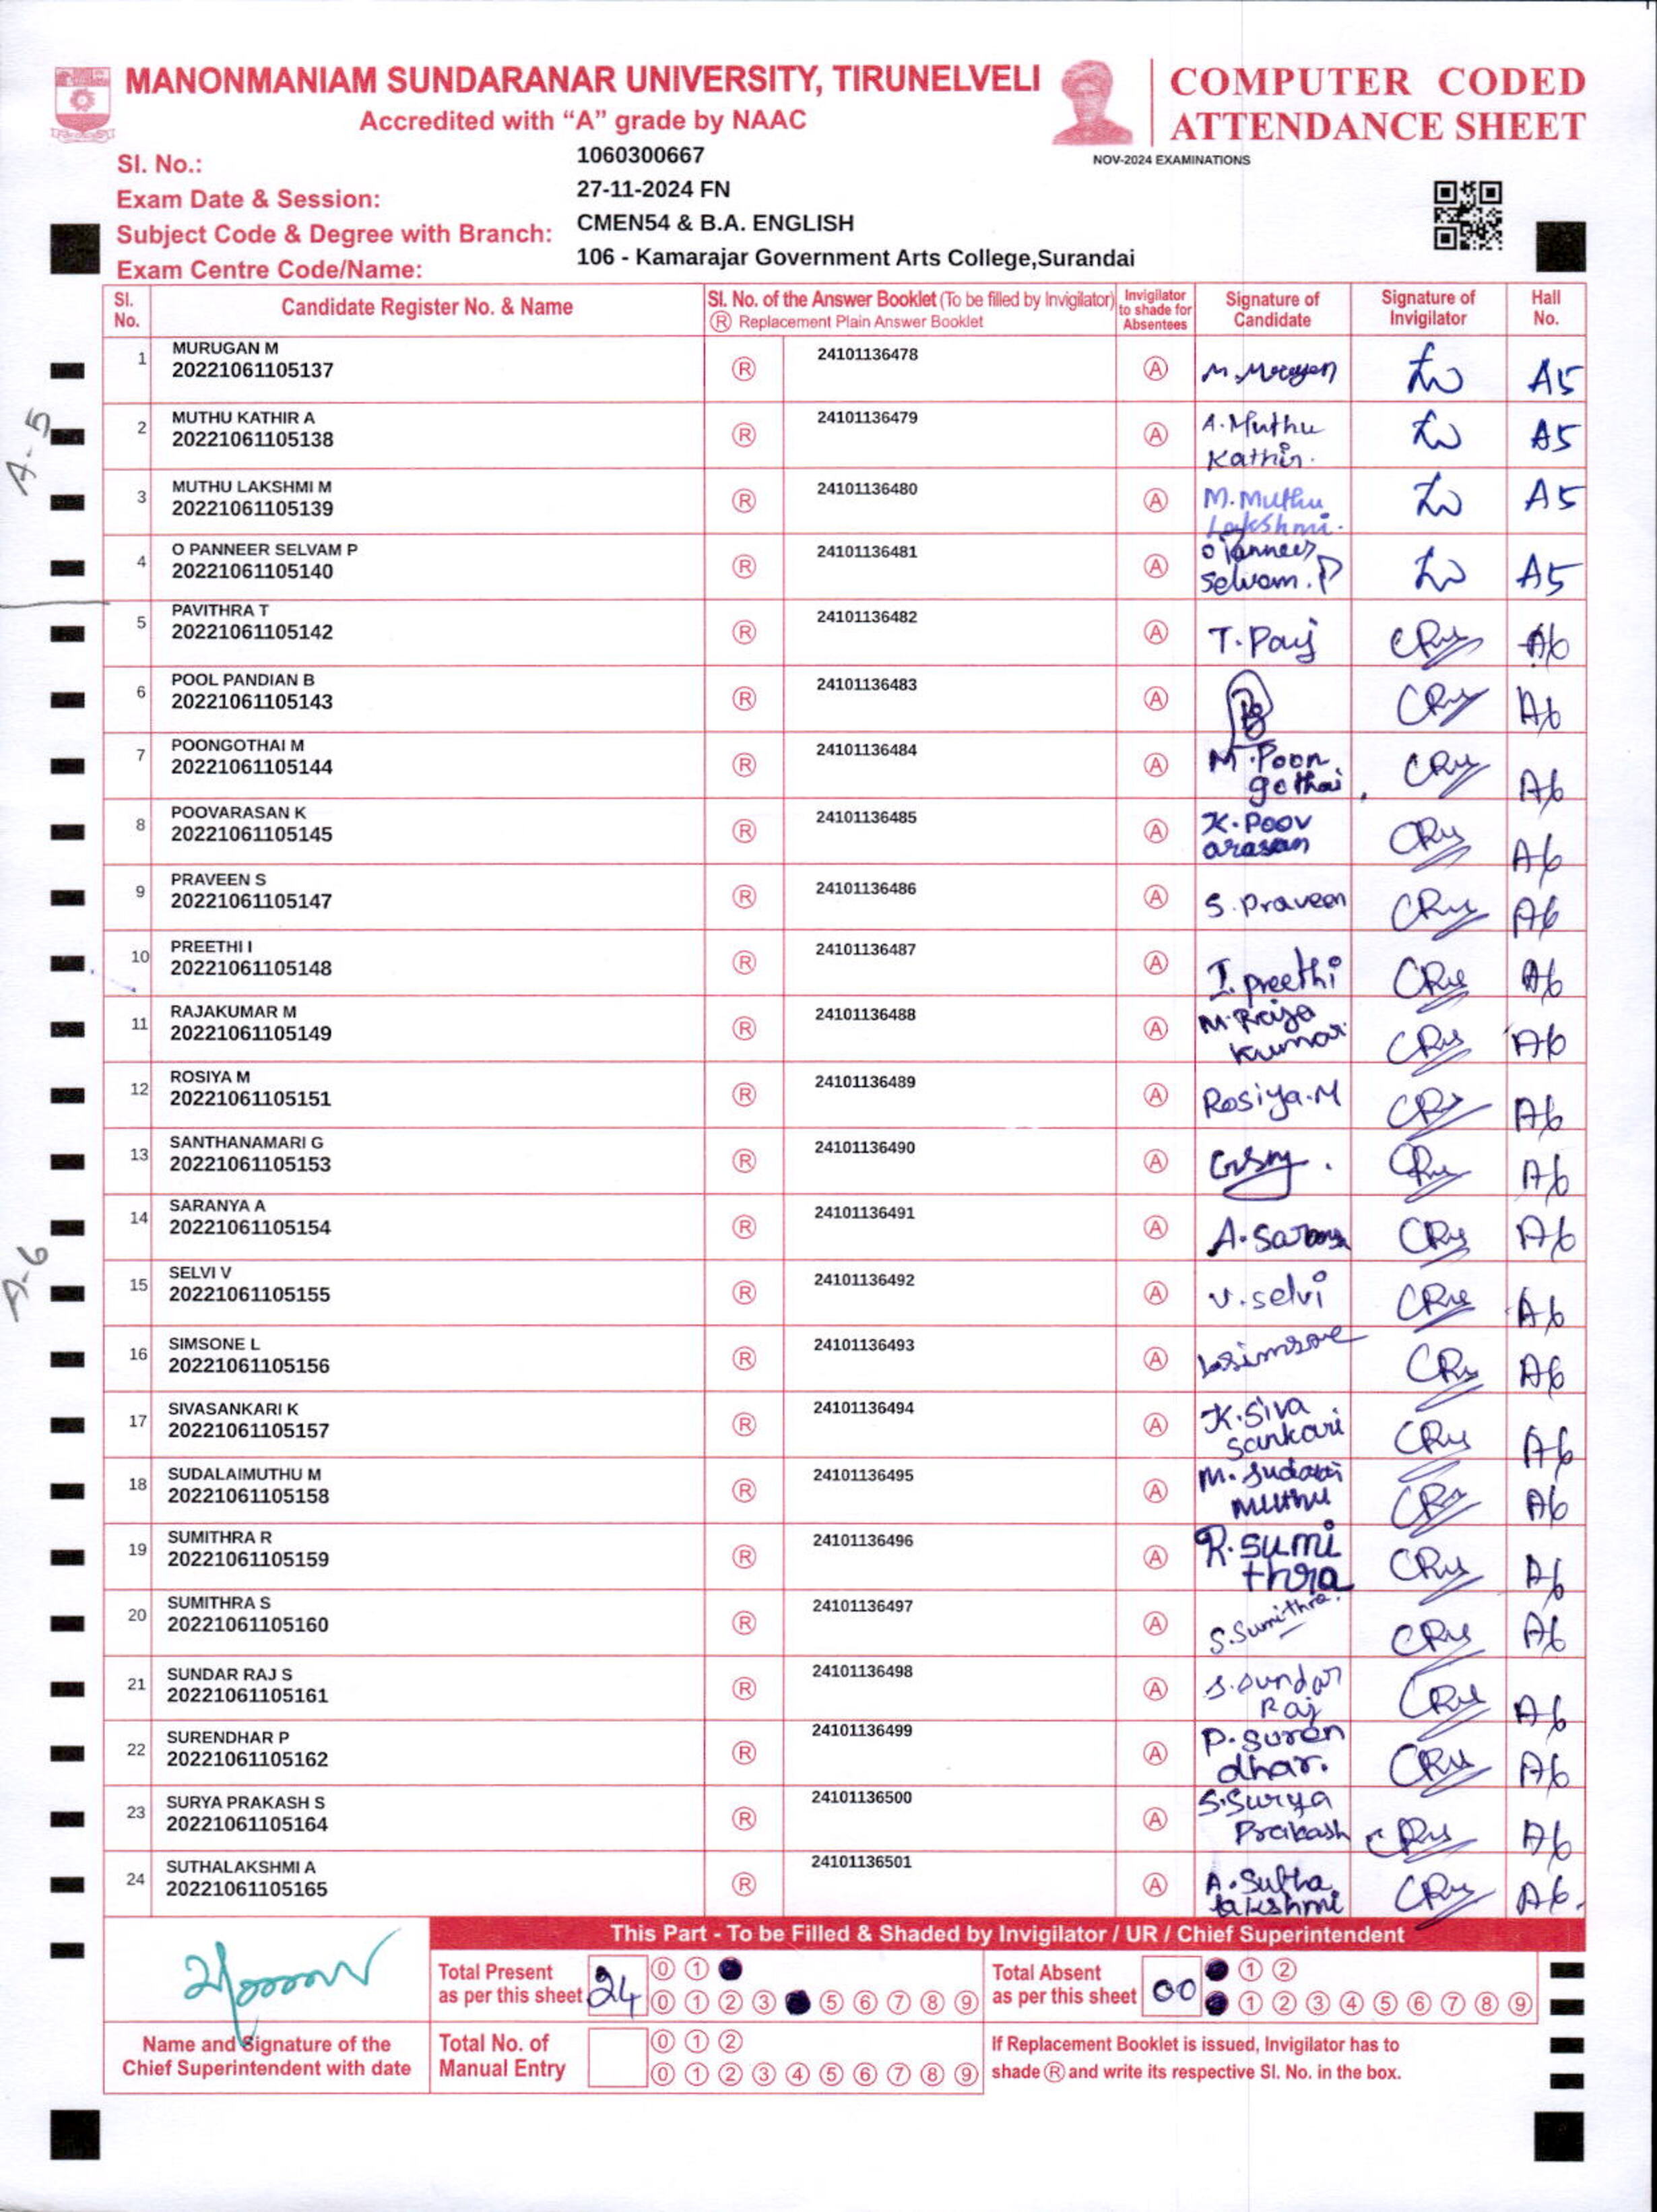 MANONMANIAM SUNDARANAR UNIVERSITY, TIRUNELVELI
Accredited with “A” grade by NAAC
COMPUTER CODED
ATTENDANCE SHEET
NOV-2024 EXAMINATIONS
Sl. No.: 1060300667
Exam Date & Session: 27-11-2024 FN
Subject Code & Degree with Branch: CMEN54 & B.A. ENGLISH
Exam Centre Code/Name: 106 - Kamarajar Government Arts College,Surandai
Sl. No. Candidate Register No. & Name Sl. No. of the Answer Booklet (To be filled by Invigilator) Ⓡ Replacement Plain Answer Booklet Invigilator to shade for Absentees Signature of Candidate Signature of Invigilator Hall No.
A-5
1 MURUGAN M 24101136478
20221061105137 Ⓡ Ⓐ A5
2 MUTHU KATHIR A 24101136479 A.Muthu
20221061105138 Ⓡ Ⓐ Kathir. A5
3 MUTHU LAKSHMI M 24101136480 M.Muthu
20221061105139 Ⓡ Ⓐ Lakshmi. A5
4 O PANNEER SELVAM P 24101136481 O Panneer
20221061105140 Ⓡ Ⓐ Selvam.P A5
5 PAVITHRA T 24101136482
20221061105142 Ⓡ Ⓐ A6
6 POOL PANDIAN B 24101136483
20221061105143 Ⓡ Ⓐ A6
7 POONGOTHAI M 24101136484 M.Poon
20221061105144 Ⓡ Ⓐ gothai A6
8 POOVARASAN K 24101136485 K.Poov
20221061105145 Ⓡ Ⓐ arasan A6
9 PRAVEEN S 24101136486
20221061105147 Ⓡ Ⓐ S.Praveen A6
10 PREETHI I 24101136487
20221061105148 Ⓡ Ⓐ I.preethi A6
11 RAJAKUMAR M 24101136488 M.Raja
20221061105149 Ⓡ Ⓐ kumar A6
12 ROSIYA M 24101136489
20221061105151 Ⓡ Ⓐ Rosiya.M A6
13 SANTHANAMARI G 24101136490
20221061105153 Ⓡ Ⓐ A6
14 SARANYA A 24101136491
20221061105154 Ⓡ Ⓐ A6
A-6
15 SELVI V 24101136492
20221061105155 Ⓡ Ⓐ V.selvi A6
16 SIMSONE L 24101136493
20221061105156 Ⓡ Ⓐ L.simsone A6
17 SIVASANKARI K 24101136494 K.Siva
20221061105157 Ⓡ Ⓐ sankari A6
18 SUDALAIMUTHU M 24101136495 M.Sudalai
20221061105158 Ⓡ Ⓐ Muthu A6
19 SUMITHRA R 24101136496 R.sumi
20221061105159 Ⓡ Ⓐ thra A6
20 SUMITHRA S 24101136497
20221061105160 Ⓡ Ⓐ S.Sumithra. A6
21 SUNDAR RAJ S 24101136498 S.Sundar
20221061105161 Ⓡ Ⓐ Raj A6
22 SURENDHAR P 24101136499 P.Suren
20221061105162 Ⓡ Ⓐ dhar. A6
23 SURYA PRAKASH S 24101136500 S.Surya
20221061105164 Ⓡ Ⓐ Prakash A6
24 SUTHALAKSHMI A 24101136501 A.Sutha
20221061105165 Ⓡ Ⓐ lakshmi A6.
This Part - To be Filled & Shaded by Invigilator / UR / Chief Superintendent
Total Present as per this sheet 24 0 1
0 1 2 3 5 6 7 8 9
Total Absent as per this sheet 00 1 2
1 2 3 4 5 6 7 8 9
Name and Signature of the
Chief Superintendent with date
Total No. of Manual Entry 0 1 2
0 1 2 3 4 5 6 7 8 9
If Replacement Booklet is issued, Invigilator has to
shade Ⓡ and write its respective Sl. No. in the box.